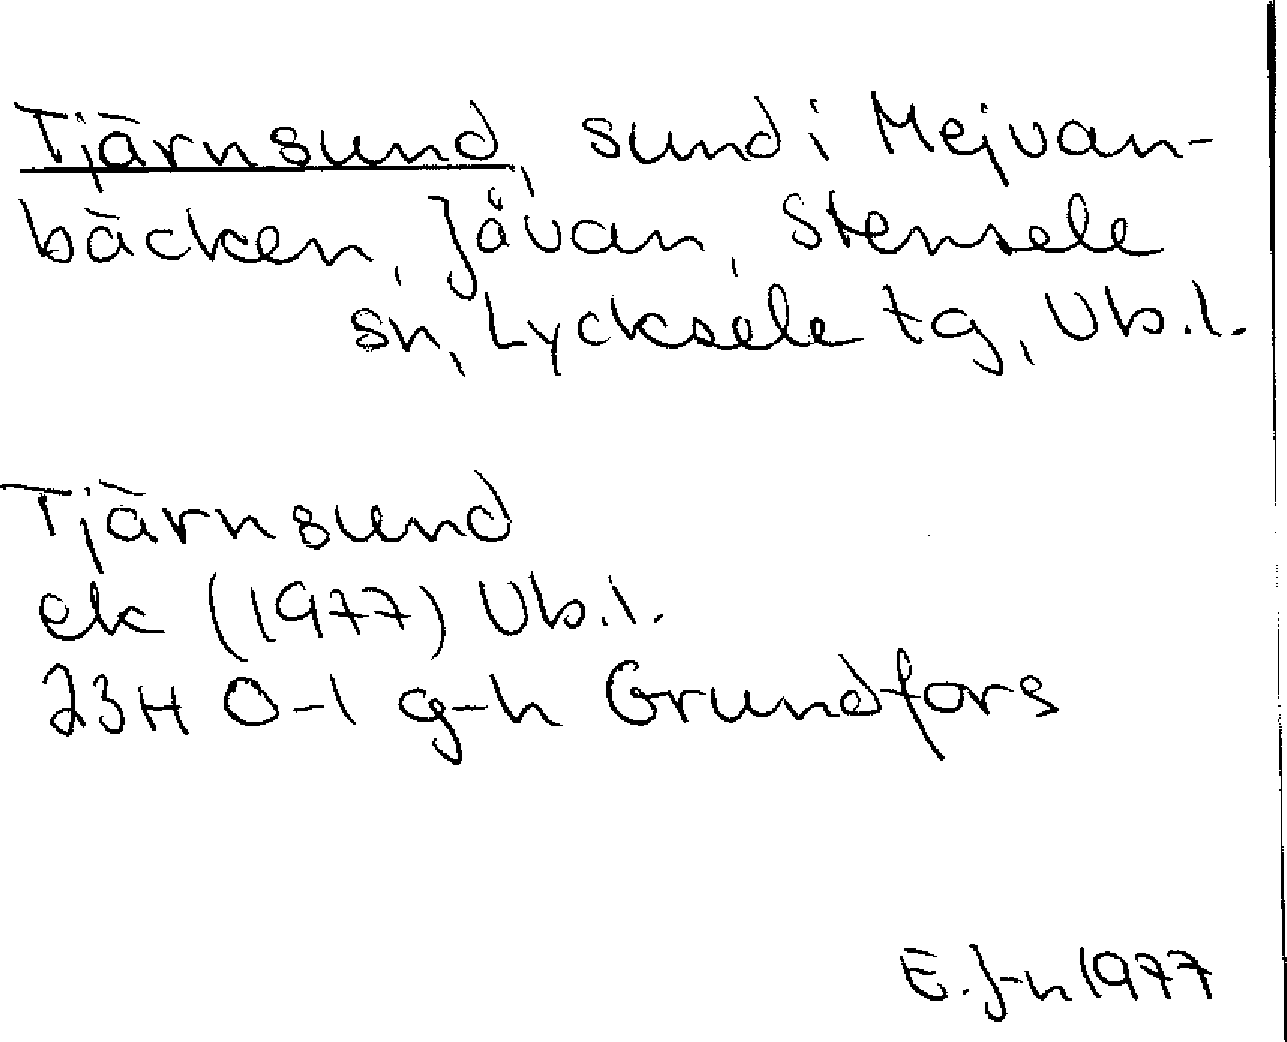 Tjärnsund, sund i Mejvan-
bäcken, Jåvan, Stensele
sn, Lycksele tg, Vb.l.
Tjärnsund
ek (1977) Vb.l.
23H 0-1 g-h Grundfors
E. J-n 1977